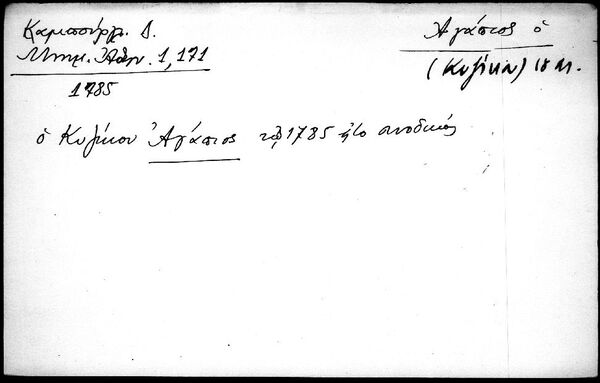 Καμπούρογλ. Δ.
Μνημ. Αθην. 1, 171
1785
Ἀγάπιος ὁ
(Κυζίκου) 18 αι.
ὁ Κυζίκου Ἀγάπιος τῷ 1785 ἦτο συνοδικός